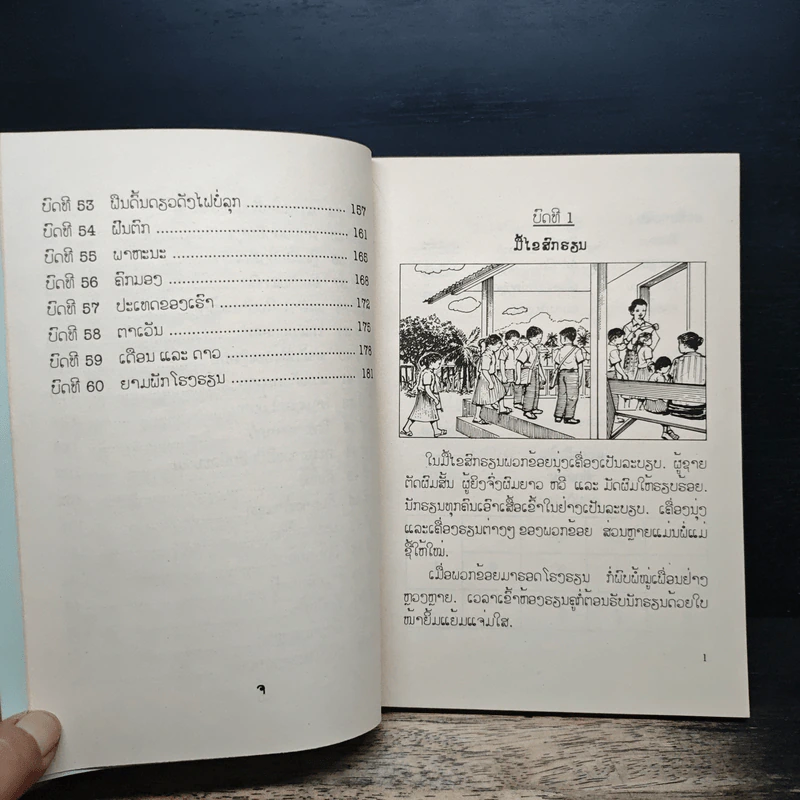 ບົດທີ 53 ຟືນດຸ້ນດຽວດັງໄຟບໍ່ລຸກ ........................ 157
ບົດທີ 54 ຝົນຕົກ ........................................ 161
ບົດທີ 55 ພາຫະນະ ........................................ 165
ບົດທີ 56 ຄົກມອງ ........................................ 168
ບົດທີ 57 ປະເທດຂອງເຮົາ ........................................ 172
ບົດທີ 58 ຕາເວັນ ........................................ 175
ບົດທີ 59 ເດືອນ ແລະ ດາວ ........................................ 178
ບົດທີ 60 ຍາມພັກໂຮງຮຽນ ........................................ 181
ຈ
ບົດທີ 1
ມື້ໄຂສົກຮຽນ
ໃນມື້ໄຂສົກຮຽນພວກຂ້ອຍນຸ່ງເຄື່ອງເປັນລະບຽບ. ຜູ້ຊາຍ
ຕັດຜົມສັ້ນ ຜູ້ຍິງຈົ່ງຜົມຍາວ ຫວີ ແລະ ມັດຜົມໃຫ້ຮຽບຮ້ອຍ.
ນັກຮຽນທຸກຄົນເອົາເສື້ອເຂົ້າໃນຢ່າງເປັນລະບຽບ. ເຄື່ອງນຸ່ງ
ແລະເຄື່ອງຮຽນຕ່າງໆ ຂອງພວກຂ້ອຍ ສ່ວນຫຼາຍແມ່ນພໍ່ແມ່
ຊື້ໃຫ້ໃໝ່.
ເມື່ອພວກຂ້ອຍມາຮອດໂຮງຮຽນ ກໍ່ພົບພໍ້ໝູ່ເພື່ອນຢ່າງ
ຫຼວງຫຼາຍ. ເວລາເຂົ້າຫ້ອງຮຽນຄູກໍ່ຕ້ອນຮັບນັກຮຽນດ້ວຍໃບ
ໜ້າຍິ້ມແຍ້ມແຈ່ມໃສ.
1